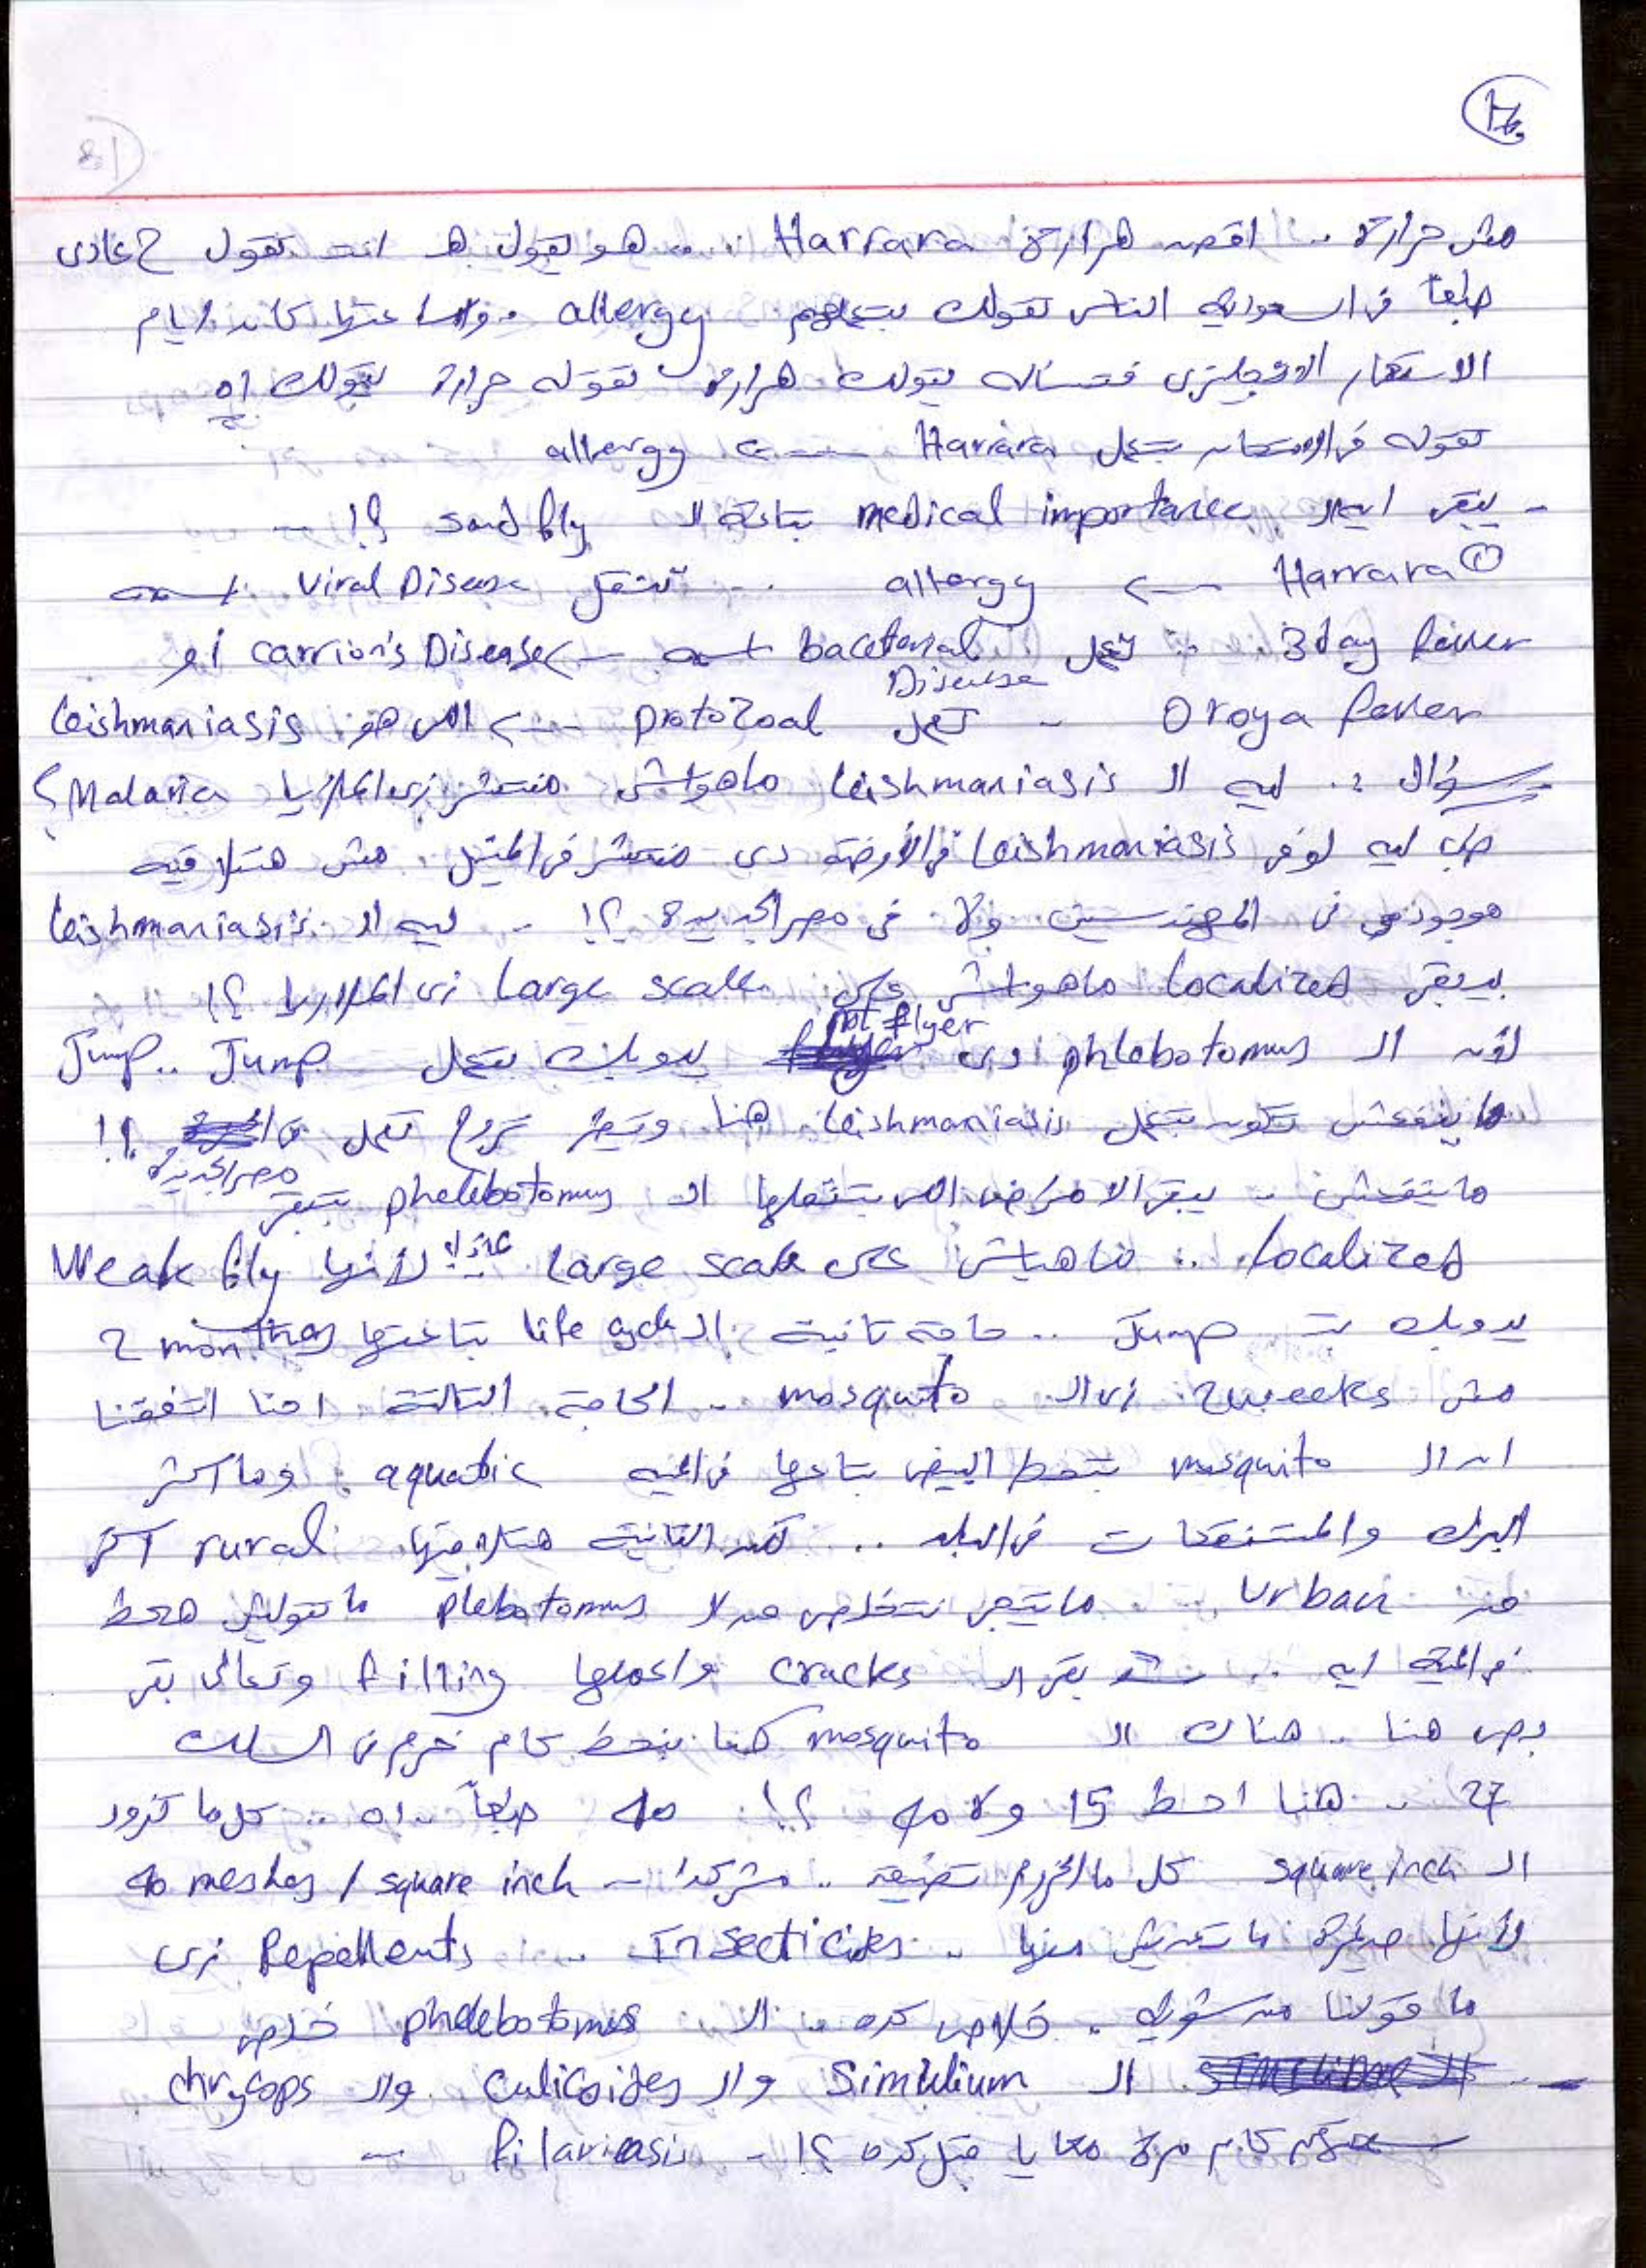 17
18
مش حرارة .. اقصد هرارة Harrara .. هو يقول هـ انت تقول ح عادى
طبعاً فى السعودية الناس تقولك بتعملهم allergy .. كانت ايام
الاستعمار الانجليزى فتسأله يقولك هرارة تقوله حرارة يقولك اه
تقوله فى الامتحان بتعمل Harara ← allergy
- يبقى ايه الـ medical importance بتاعة الـ sand fly ؟! --
① Harrara ← allergy .. تنقل Viral Disease اسمه
3 day fever .. تعمل bacterial Disease اسمه ← carrion's Disease أو
Oroya fever - تعمل protozoal ← اللى هو leishmaniasis
سؤال : ليه الـ leishmaniasis ماهواش منتشر زى الملاريا Malaria ؟
طب ليه لو فى leishmaniasis فى الأوضة دى منتشر فى المنيل . مش هتلاقيه
موجود فى المهندسين ولا فى مصر الجديدة ؟! - ليه الـ leishmaniasis
بيبقى localized ماهواش على large scale زى الملاريا ؟!
لأن الـ phlebotomus دى not flyer يدوبك بتعمل Jump .. Jump
ما ينفعش تكون بتعمل leishmaniasis هنا وتطير تروح تعمل فى مصر الجديدة !!
ماينفعش - يبقى الامراض اللى بتنقلها الـ phelebotomus بتبقى
localized .. ماهياش على large scale عشان لأنها Weak fly
يدوبك بتـ Jump .. حاجة تانية الـ life cycle بتاعتها 2 months
مش 2 weeks زى الـ mosquito .. الحاجة التالتة احنا اتفقنا
ان الـ mosquito بتحط البيض بتاعها فى المية aquatic وما أكثر
البرك والمستنقعات فى البلد .. لكن التانية هتلاقيها rural اكتر
من Urban .. ماتيجى نتخلص من الـ plebotomus ماتقوليش هحط
فى المية ايه .. بقى الـ cracks واعملها filling وتعالى بقى
بص هنا .. هناك الـ mosquito كنا بنحط كام خرم فى السلك
27 .. هنا احط 15 ولا 40 ؟!! 40 طبعاً .. اه .. كل ما تزود
الـ square inch كل ما الخروم تضيق .. مش كدا - 40 meshes / square inch
لأنها صغيرة ما تعديش منها .. Insecticides .. Repellents زى
ما قولنا من شوية . خلاص كده .. الـ phelebotomus خلص
-- الـ Simulium والـ Culicoides والـ chrysops
كام مرة معايا قبل كده ؟! - filariasis --